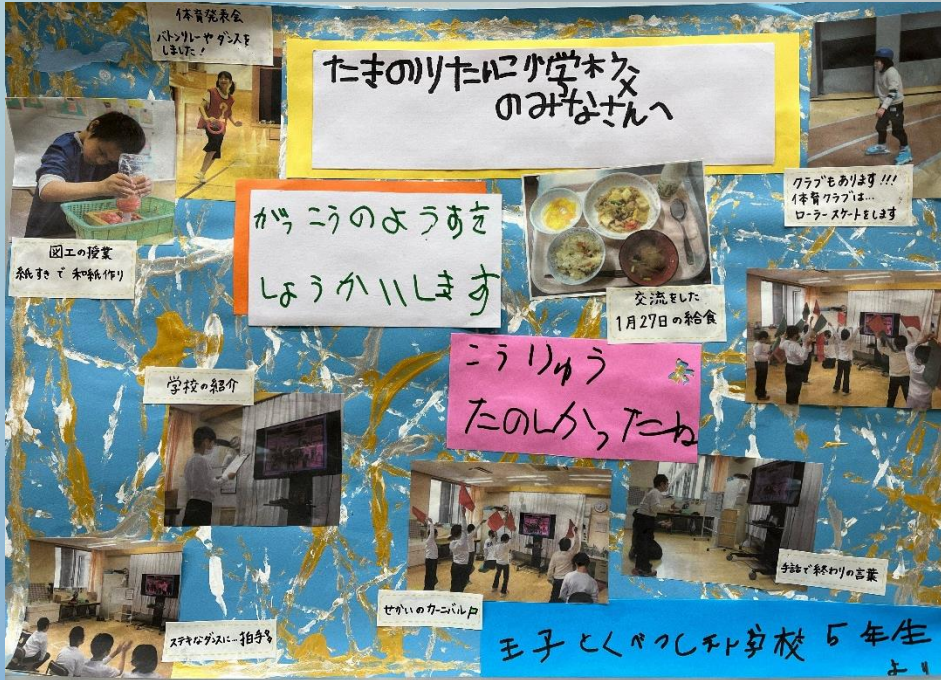 体育発表会
バトンリレーやダンスを
しました！
たきのりたに小学校
のみなさんへ
クラブもあります!!!
体育クラブは...
ローラースケートをします
図工の授業
紙すきで和紙作り
がっこうのようすを
しょうかいします
交流をした
1月27日の給食
こうりゅう
たのしかったね
学校の紹介
手話で終わりの言葉
せかいのカーニバル
ステキなダンスに...拍手
王子とくべつし 学校 5年生
より